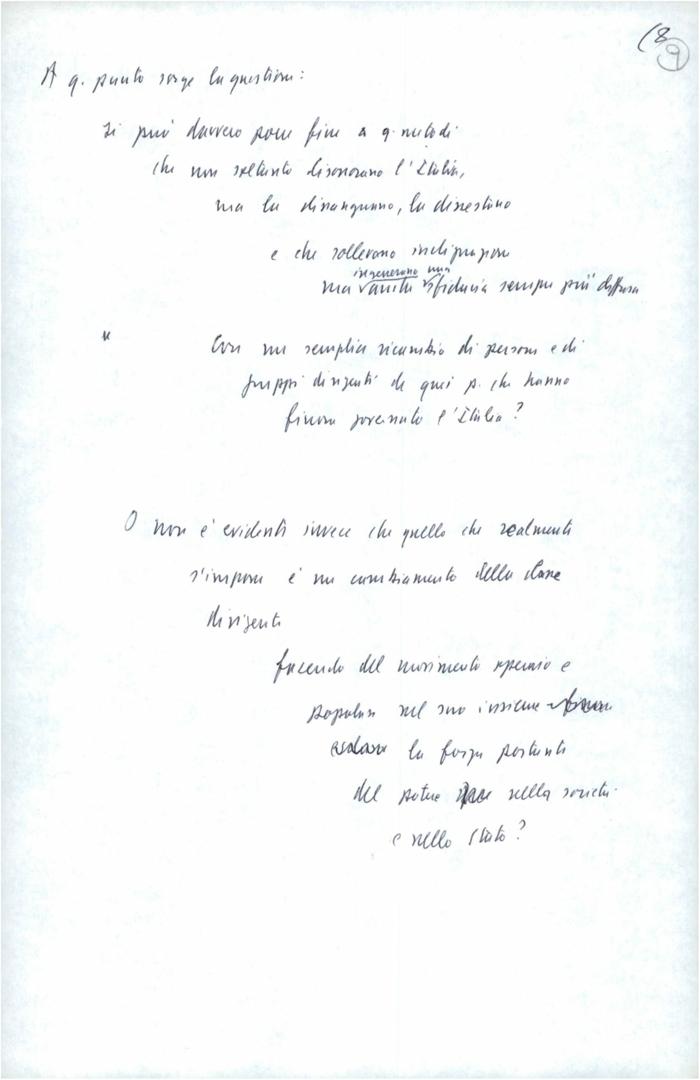 9
A q. punto sorge la questione:
Si può davvero porre fine a q. metodi
che non soltanto disonorano l'Italia,
ma la dissanguano, la dissestano
e che sollevano
ingenerano una
ma anche sfiducia sempre più diffusa
Con un semplice ricambio di persone e di
gruppi dirigenti de quei p. che hanno
finora governato l'Italia?
O non è evidente invece che quello che realmente
s'impone è un cambiamento della classe
dirigente
facendo del movimento operaio e
popolare nel suo insieme finora
escluso la forza portante
del potere nella società
e nello Stato?